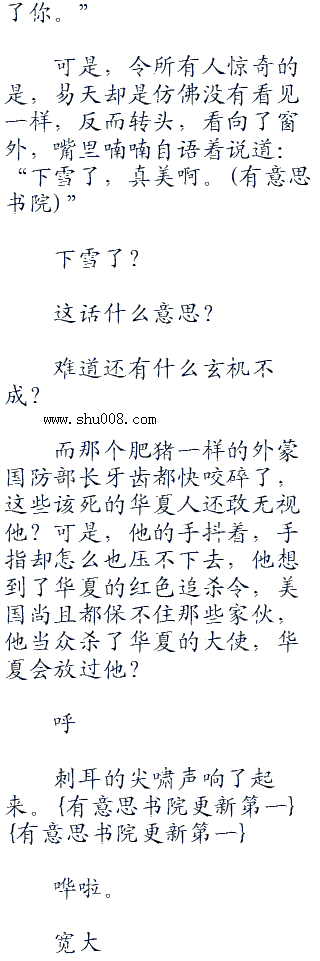 了你。”
可是，令所有人惊奇的
是，易天却是仿佛没有看见
一样，反而转头，看向了窗
外，嘴里喃喃自语着说道：
“下雪了，真美啊。(有意思
书院)”
下雪了？
这话什么意思？
难道还有什么玄机不
成？
www.shu008.com
而那个肥猪一样的外蒙
国防部长牙齿都快咬碎了，
这些该死的华夏人还敢无视
他？可是，他的手抖着，手
指却怎么也压不下去，他想
到了华夏的红色追杀令，美
国尚且都保不住那些家伙，
他当众杀了华夏的大使，华
夏会放过他？
呼
刺耳的尖啸声响了起
来。{有意思书院更新第一}
{有意思书院更新第一}
哗啦。
宽大